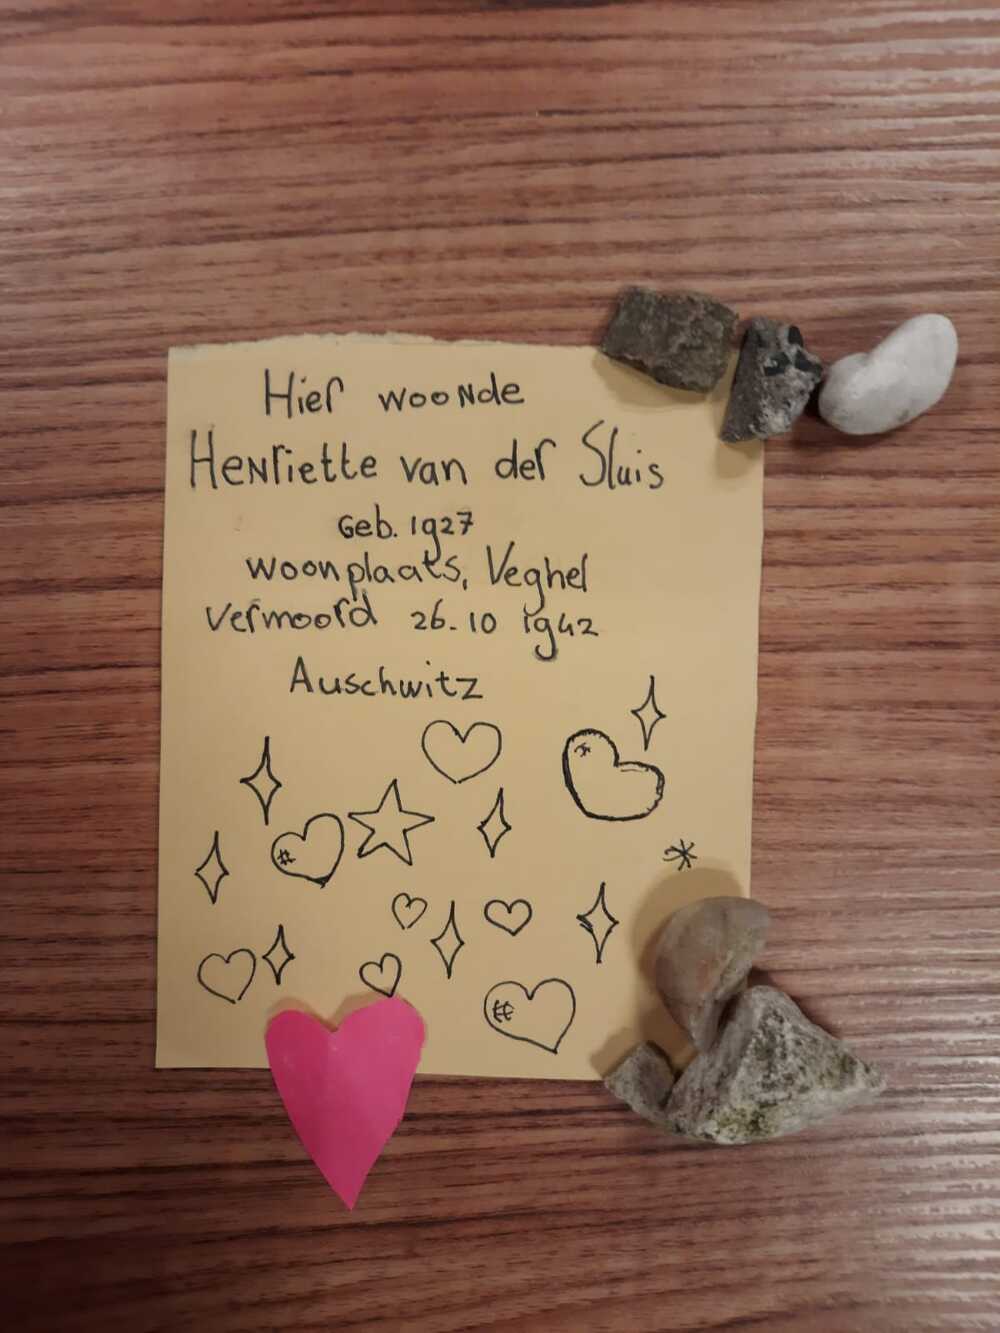 Hier woonde
Henriette van der Sluis
Geb. 1927
woonplaats, Veghel
Vermoord 26.10 1942
Auschwitz